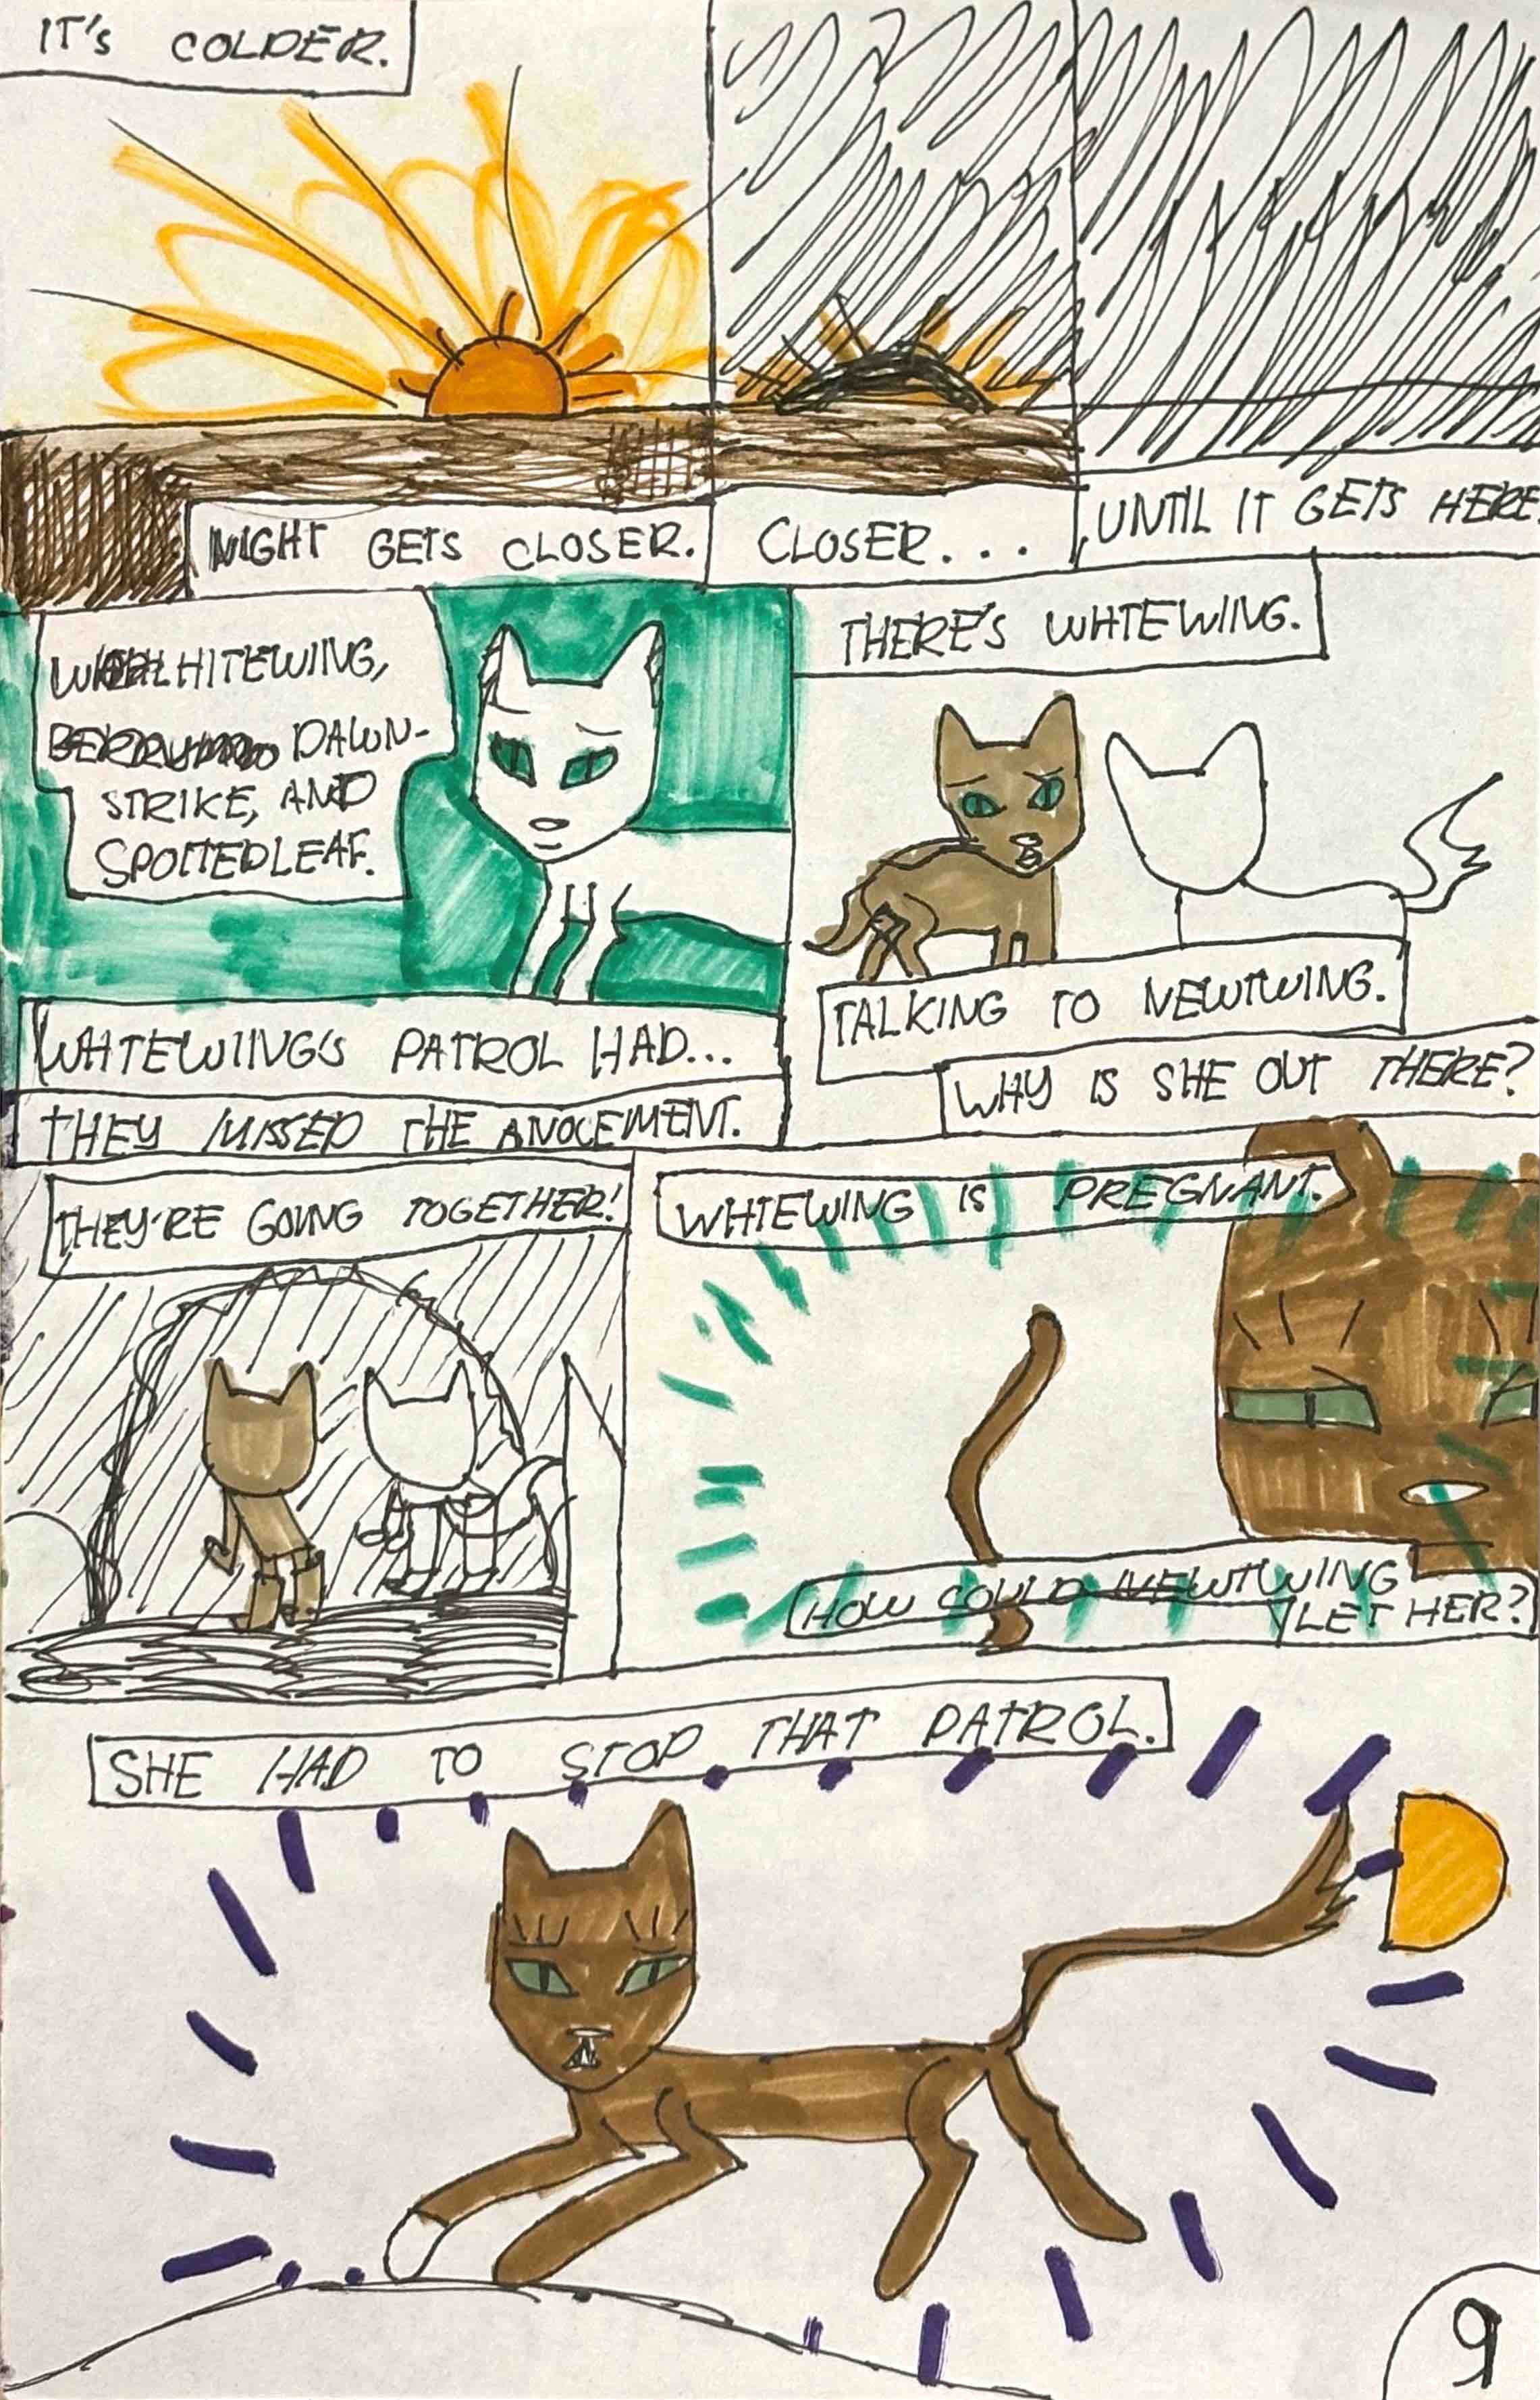 IT's COLDER.
NIGHT GETS CLOSER.
CLOSER...
UNTIL IT GETS HERE
WHITEWING,
DAWN-
STRIKE, AND
SPOTTEDLEAF.
WHITEWIING'S PATROL HAD...
THEY MISSED THE ANOCEMENT.
THERE'S WHTEWING.
TALKING TO NEWTWING.
WHY IS SHE OUT THERE?
THEY'RE GOING TOGETHER!
WHTEWING IS PREGNANT.
HOW COULD NEWTWING
LET HER?
SHE HAD TO STOP THAT PATROL.
9